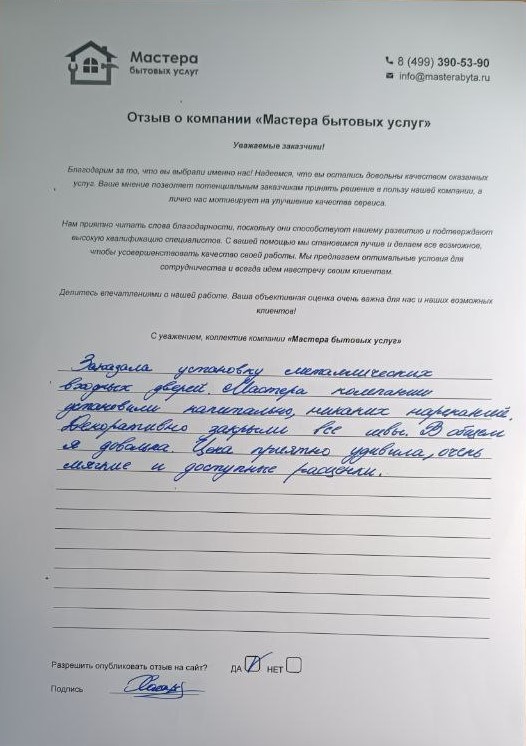 Мастера
бытовых услуг
8 (499) 390-53-90
info@masterabyta.ru
Отзыв о компании «Мастера бытовых услуг»
Уважаемые заказчики!
Благодарим за то, что вы выбрали именно нас! Надеемся, что вы остались довольны качеством оказанных
услуг. Ваше мнение позволяет потенциальным заказчикам принять решение в пользу нашей компании, а
лично нас мотивирует на улучшение качества сервиса.
Нам приятно читать слова благодарности, поскольку они способствуют нашему развитию и подтверждают
высокую квалификацию специалистов. С вашей помощью мы становимся лучше и делаем все возможное,
чтобы усовершенствовать качество своей работы. Мы предлагаем оптимальные условия для
сотрудничества и всегда идем навстречу своим клиентам.
Делитесь впечатлениями о нашей работе. Ваша объективная оценка очень важна для нас и наших возможных
клиентов!
С уважением, коллектив компании «Мастера бытовых услуг»
Заказала установку металлических
входных дверей. Мастера компании
установили капитально, никаких нареканий.
Декоративно закрыли все швы. В общем
я довольна. Цена приятно удивила, очень
мягкие и доступные расценки.
Разрешить опубликовать отзыв на сайт? ДА НЕТ
Подпись